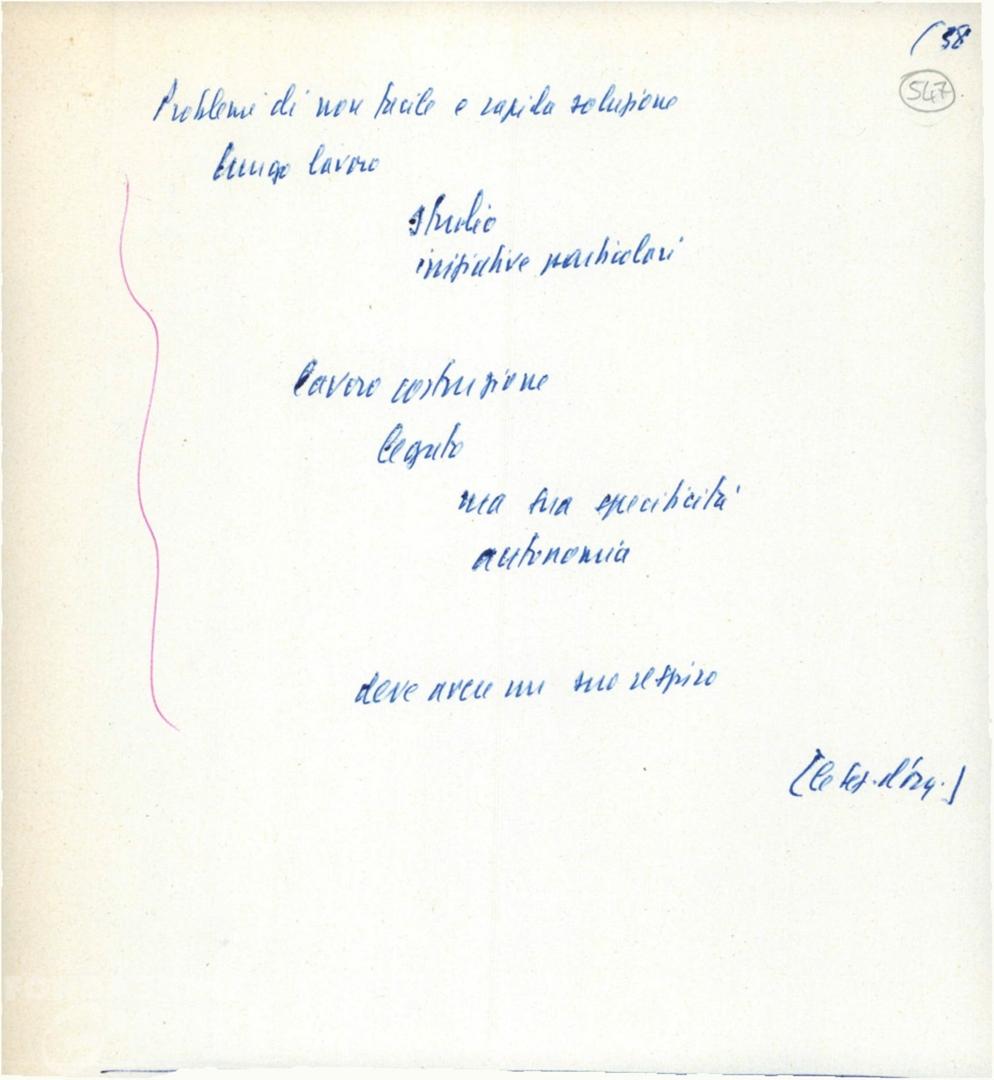 (38
547
Problemi di non facile e rapida soluzione
lungo lavoro
studio
iniziative particolari
lavoro costruzione
legato
ma sua specificità
autonomia
deve avere un suo respiro
[le